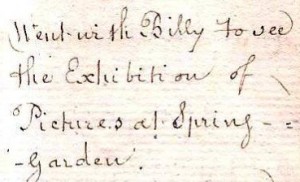 Went with Billy to see
the Exhibition of
Pictures at Spring -
- Garden.